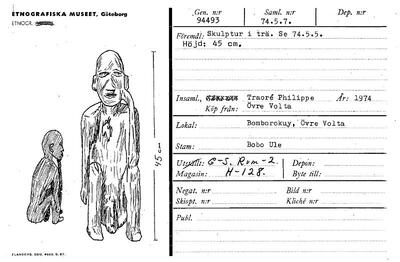 ETNOGRAFISKA MUSEET, Göteborg
ETNOGR.
Gen. n:r Saml. n:r Dep. n:r
94493 74.5.7.
Föremål: Skulptur i trä. Se 74.5.5.
Höjd: 45 cm.
45
Insaml., Traoré Philippe År: 1974
Köp från: Övre Volta
Lokal: Bomborokuy, Övre Volta
Stam: Bobo Ule
Utställt: G-S. Rum-2. Depon:
Magasin: H-128. Byte till:
Negat. n:r Bild n:r
Skispt. n:r Kliché n:r
Publ.